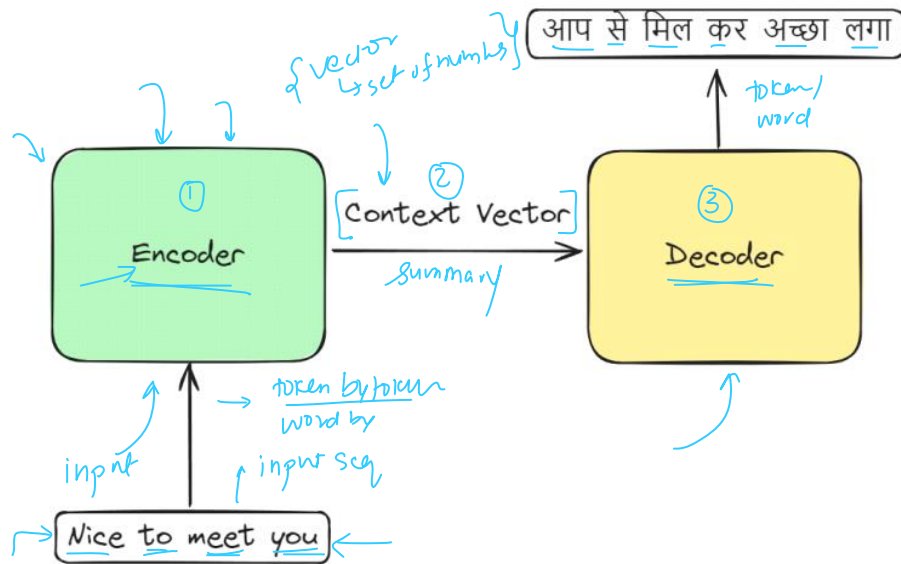 आप से मिल कर अच्छा लगा
{vector
↳ set of numbers}
token/
word
①
②
③
[Context Vector]
Encoder
Decoder
summary
→ token by token
word by
input
input seq
Nice to meet you